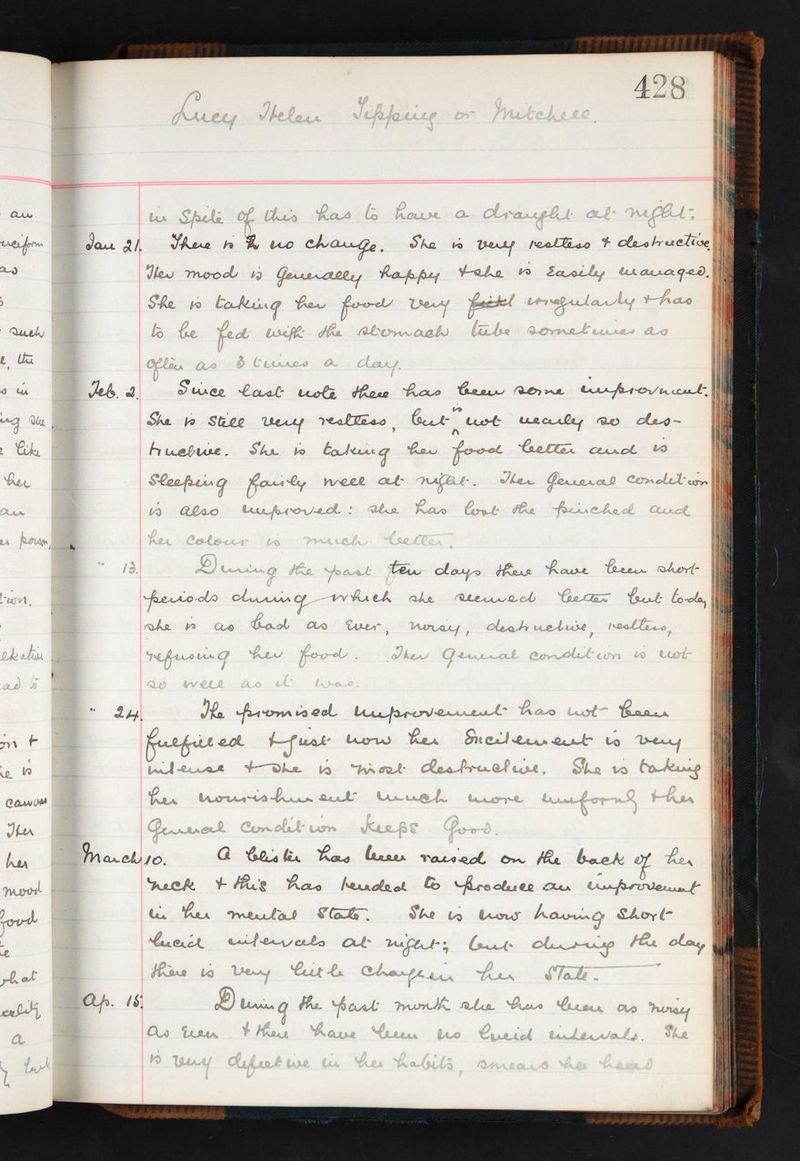 428
Lucy Helen Tipping or Mitchell.
in spite of this has to have a draught at night.
Jan 21. There is no change. She is very restless & destructive.
Her mood is generally happy & she is easily managed.
She is taking her food very irregularly & has
to be fed with the stomach tube sometimes as
often as 3 times a day.
Feb. 2. Since last note there has been some improvment.
She is still very restless, but is not nearly so des-
tructive. She is taking her food better and is
sleeping fairly well at night. Her general condition
is also improved: she has lost the pinched and
her colour is much better.
" 13. During the past ten days there have been short
periods during which she seemed better but to-day
she is as bad as ever, noisy, destructive, restless,
refusing her food. Her general condition is not
so well as it was.
" 24. The promised improvement has not been
fulfilled & just now her excitement is very
intense & she is most destructive. She is taking
her nourishment much more uniformly & her
general condition keeps good.
March 10. A blister has been raised on the back of her
neck & this has tended to produce an improvement
in her mental state. She is now having short
lucid intervals at night; but during the day
there is very little change in her state.
Ap. 15. During the past month she has been as noisy
as ever & there have been no lucid intervals. She
is very defective in her habits, smears her head
an
as
such
the
in
she
like
her
an
&
is
canvas
Her
her
mood
food
what
a